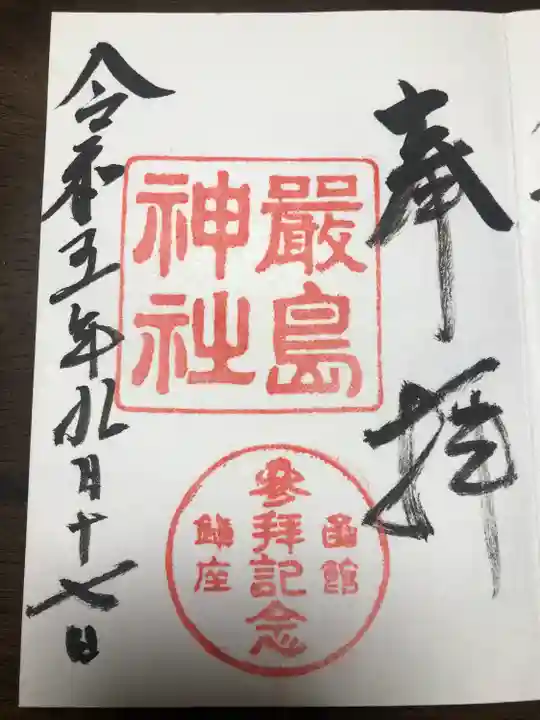 奉拝
嚴島
神社
函館
参拝記念
鎮座
令和五年九月十七日